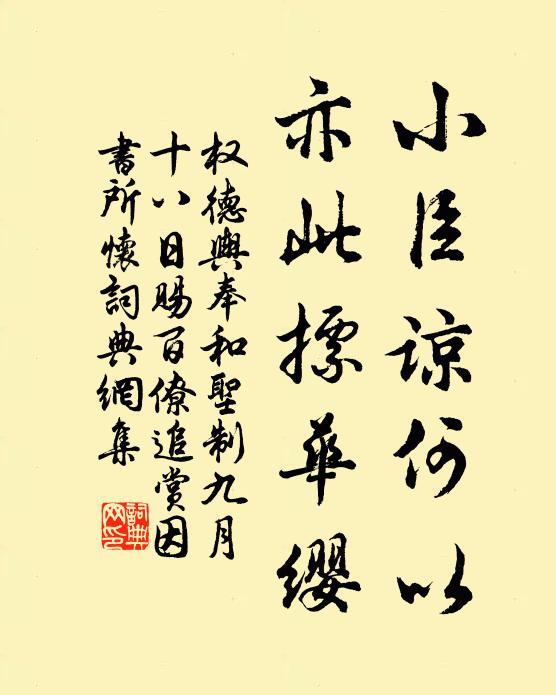 小臣谅何以
亦此摽華缨
权德輿奉和聖制九月
十八日賜百僚追賞因
書所懷詞典網集
詞典
网印